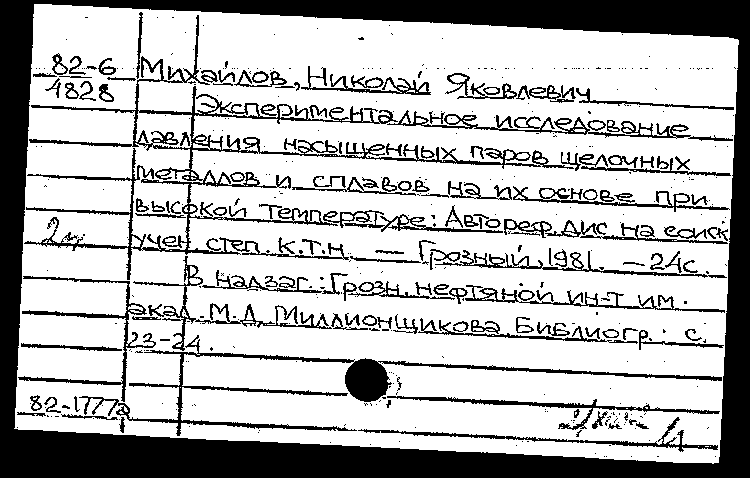 82-6 Михайлов, Николай Яковлевич
4828 Экспериментальное исследование
давления насыщенных паров щелочных
металлов и сплавов на их основе при
высокой температуре: Автореф. дис. на соиск
учен. степ. к.т.н. — Грозный, 1981. — 24с.
В надзаг.: Грозн. нефтяной ин-т им.
акад. М.Д. Миллионщикова. Библиогр.: с.
23-24.
82-1777а